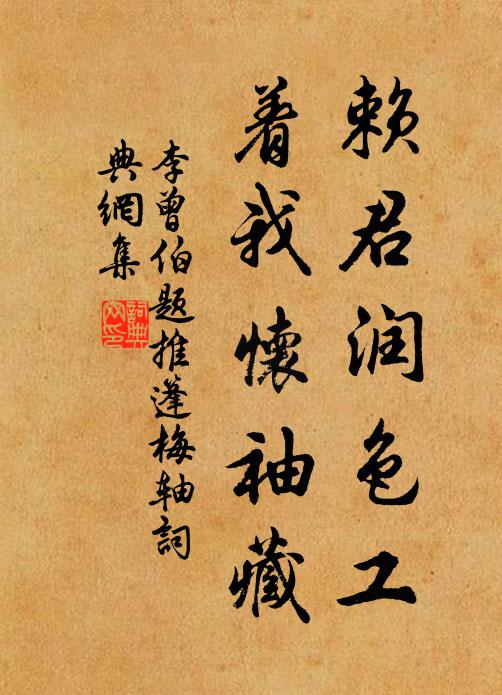 賴君润色工
着我懷袖藏
李曾伯題推篷梅轴詞
典網集
詞典
网印